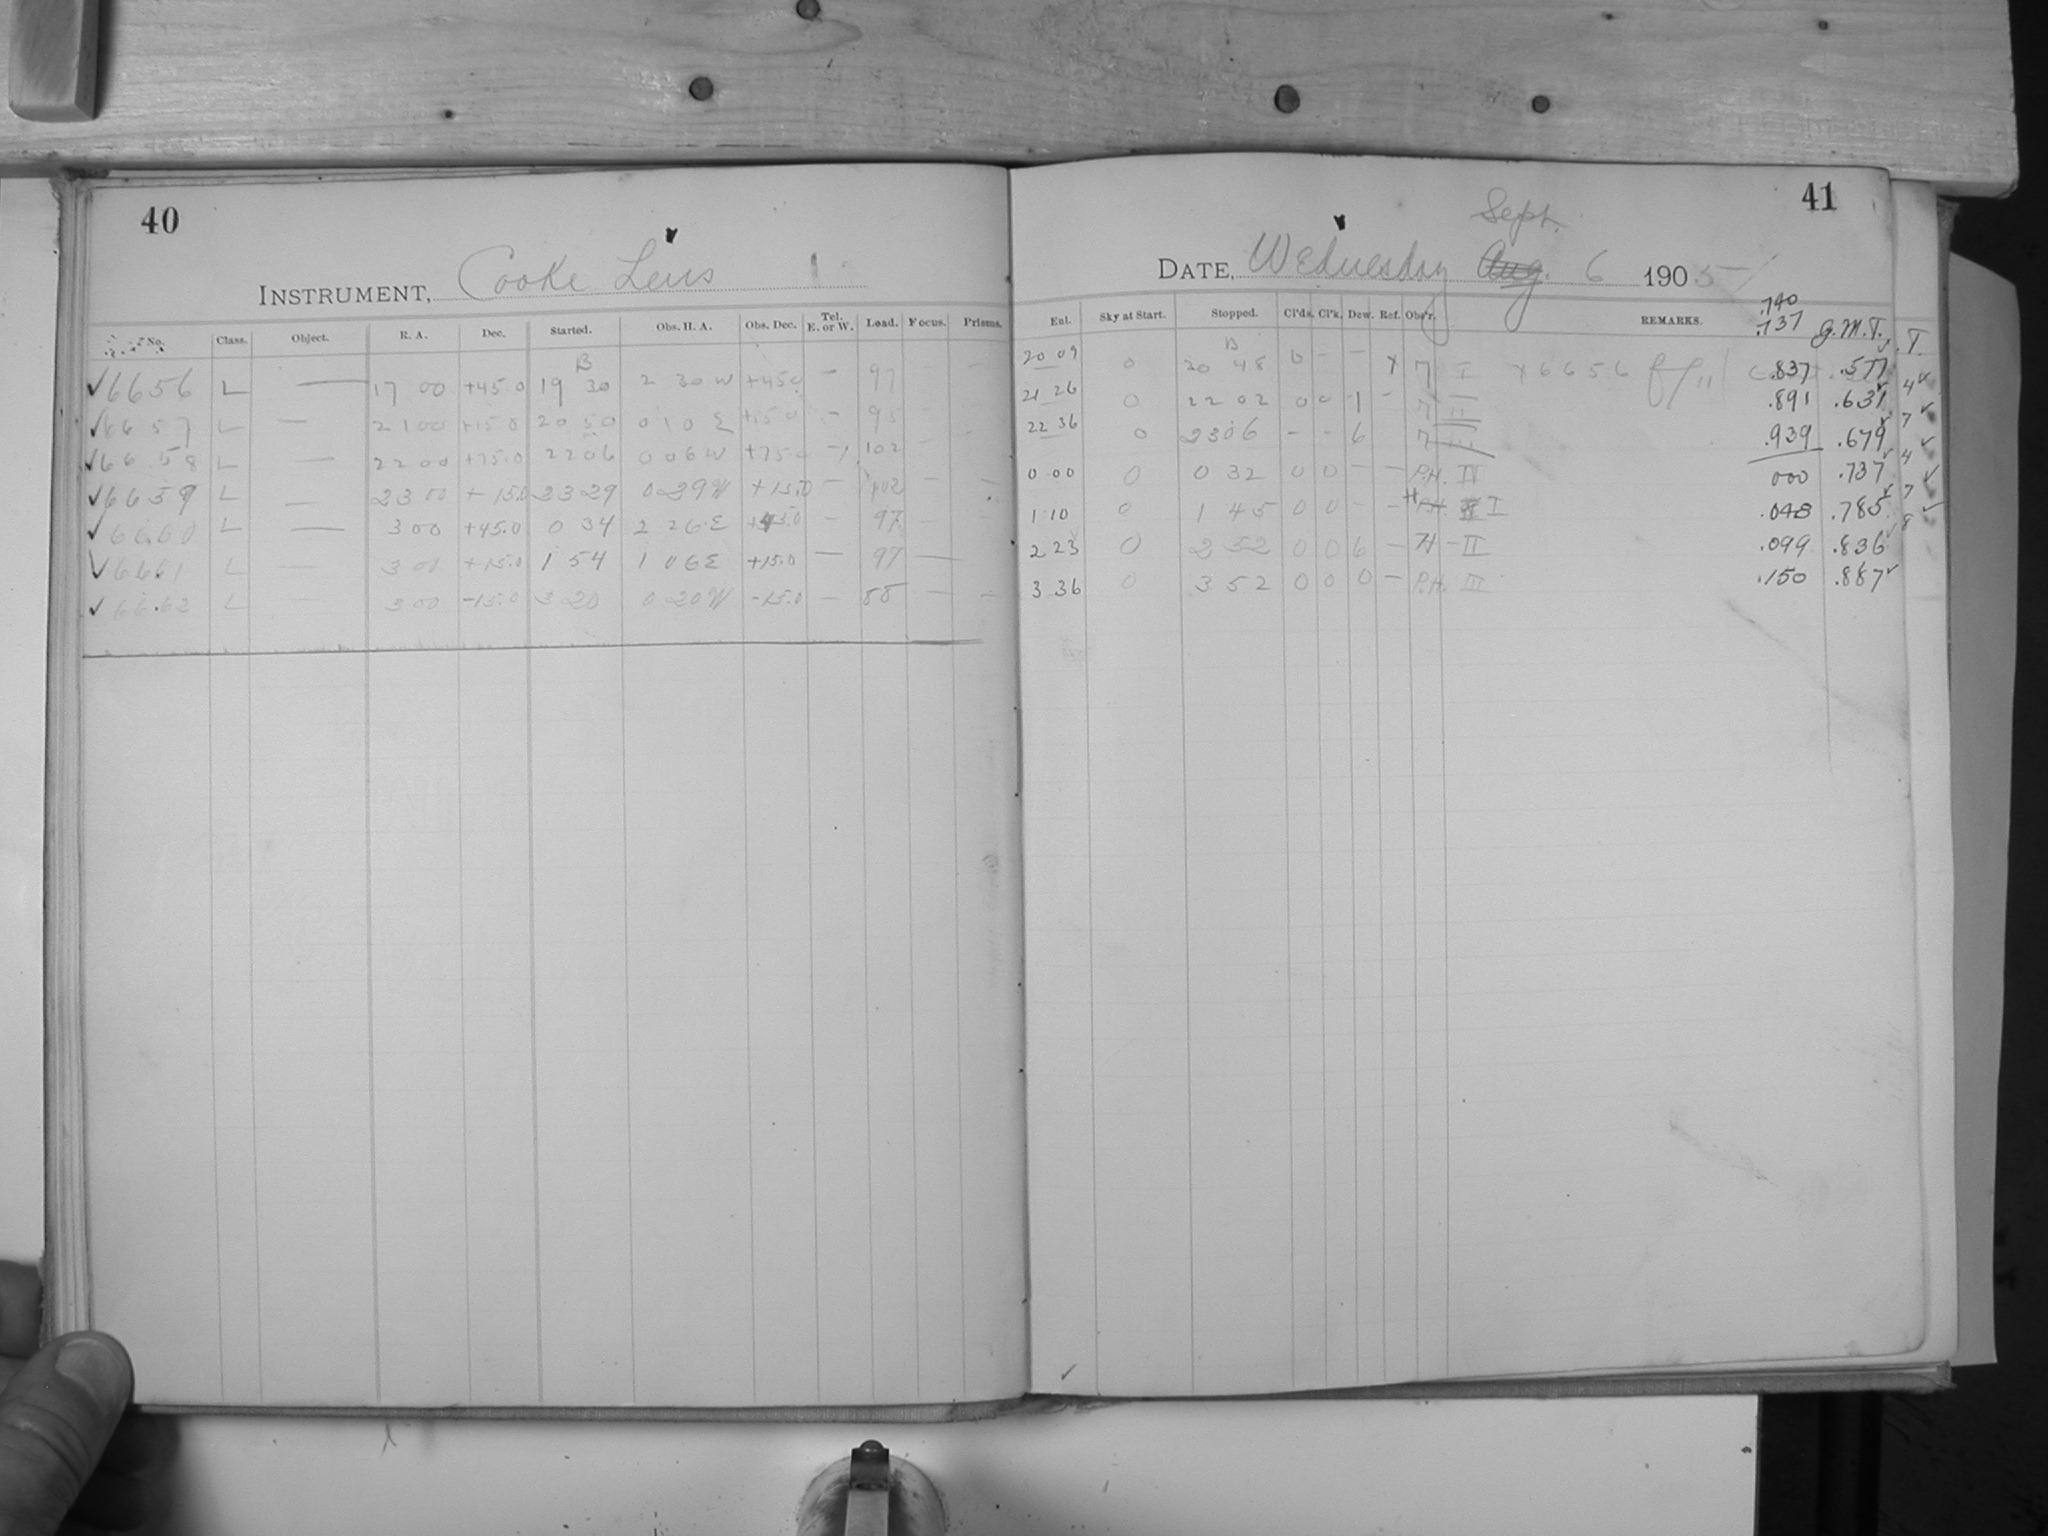 40
INSTRUMENT, Cooke Lens 1
No. Class. Object. R. A. Dec. Started. Obs. H. A. Obs. Dec. Tel. E. or W. Load. Focus. Prisms.
B
✓6656 L — 17 00 +45.0 19 30 2 30 W +45.0 – 97 – –
✓6657 L — 21 00 +15.0 20 50 0 10 E +15.0 – 95 – –
✓6658 L — 22 00 +75.0 22 06 0 06 W +75.0 – 102 – –
✓6659 L — 23 00 +15.0 23 29 0 29 W +15.0 – 102 – –
✓6660 L — 3 00 +45.0 0 34 2 26 E +45.0 – 97
✓6661 L — 3 00 +15.0 1 54 1 06 E +15.0 — 97 —
✓6662 L — 3 00 -15.0 3 20 0 20 W -15.0 — 88 — –
41
Sept.
DATE, Wednesday Aug. 6 1905
.740
.737 G.M.T. .T.
Enl. Sky at Start. Stopped. Cl'ds. Cl'k. Dew. Ref. Obs'r. REMARKS.
B
20 09 0 20 48 0 – – x 7 I x6656 .837 .577
21 26 0 22 02 0 0 1 – 7 II .891 .631 4
22 36 0 23 06 – – 6 7 III .939 .679 7
0 00 0 0 32 0 0 – – P.H. IV 000 .737 4
1 10 0 1 45 0 0 – – H I .048 .785 7
2 23 0 2 52 0 0 6 – H – II .099 .836 8
3 36 0 3 52 0 0 0 – P.H. III .150 .887